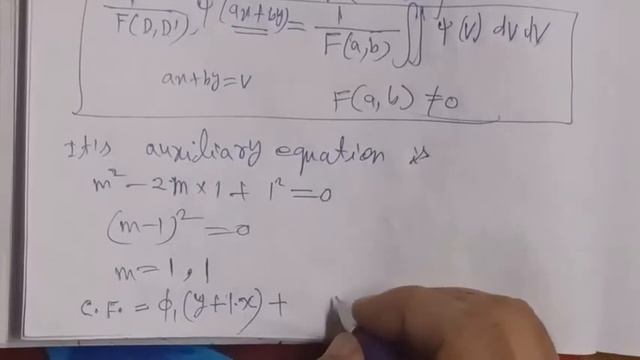 1/F(D,D') . ψ(ax+by) = 1/F(a,b) ∫∫ ψ(v) dv dv
ax+by=v
F(a,b) ≠0
It's auxiliary equation is
m² - 2m×1 + 1² = 0
(m-1)² = 0
m = 1, 1
C.F. = φ₁(y+1·x) +